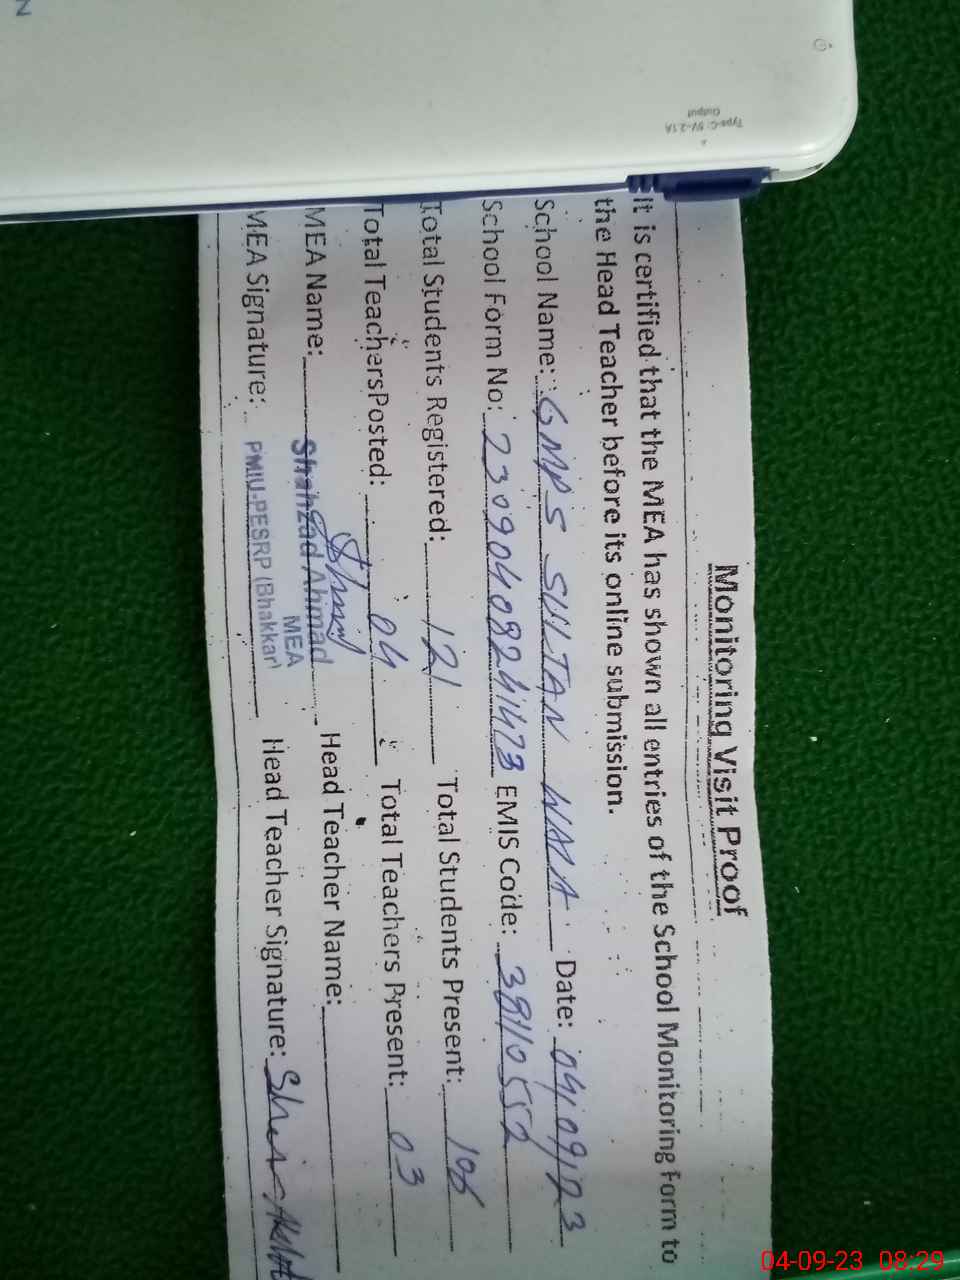 Monitoring Visit Proof
It is certified that the MEA has shown all entries of the School Monitoring Form to
the Head Teacher before its online submission.
School Name: GMPS SULTAN WALA Date: 04/09/23
School Form No: 23090408241473 EMIS Code: 38110552
Total Students Registered: 121 Total Students Present: 106
Total TeachersPosted: 04 Total Teachers Present: 03
MEA Name: Shahzad Ahmad Head Teacher Name:
MEA
MEA Signature: PMIU-PESRP (Bhakkar) Head Teacher Signature: Sher
Type-C: 5V-2.1A
Output
04-09-23 08:29